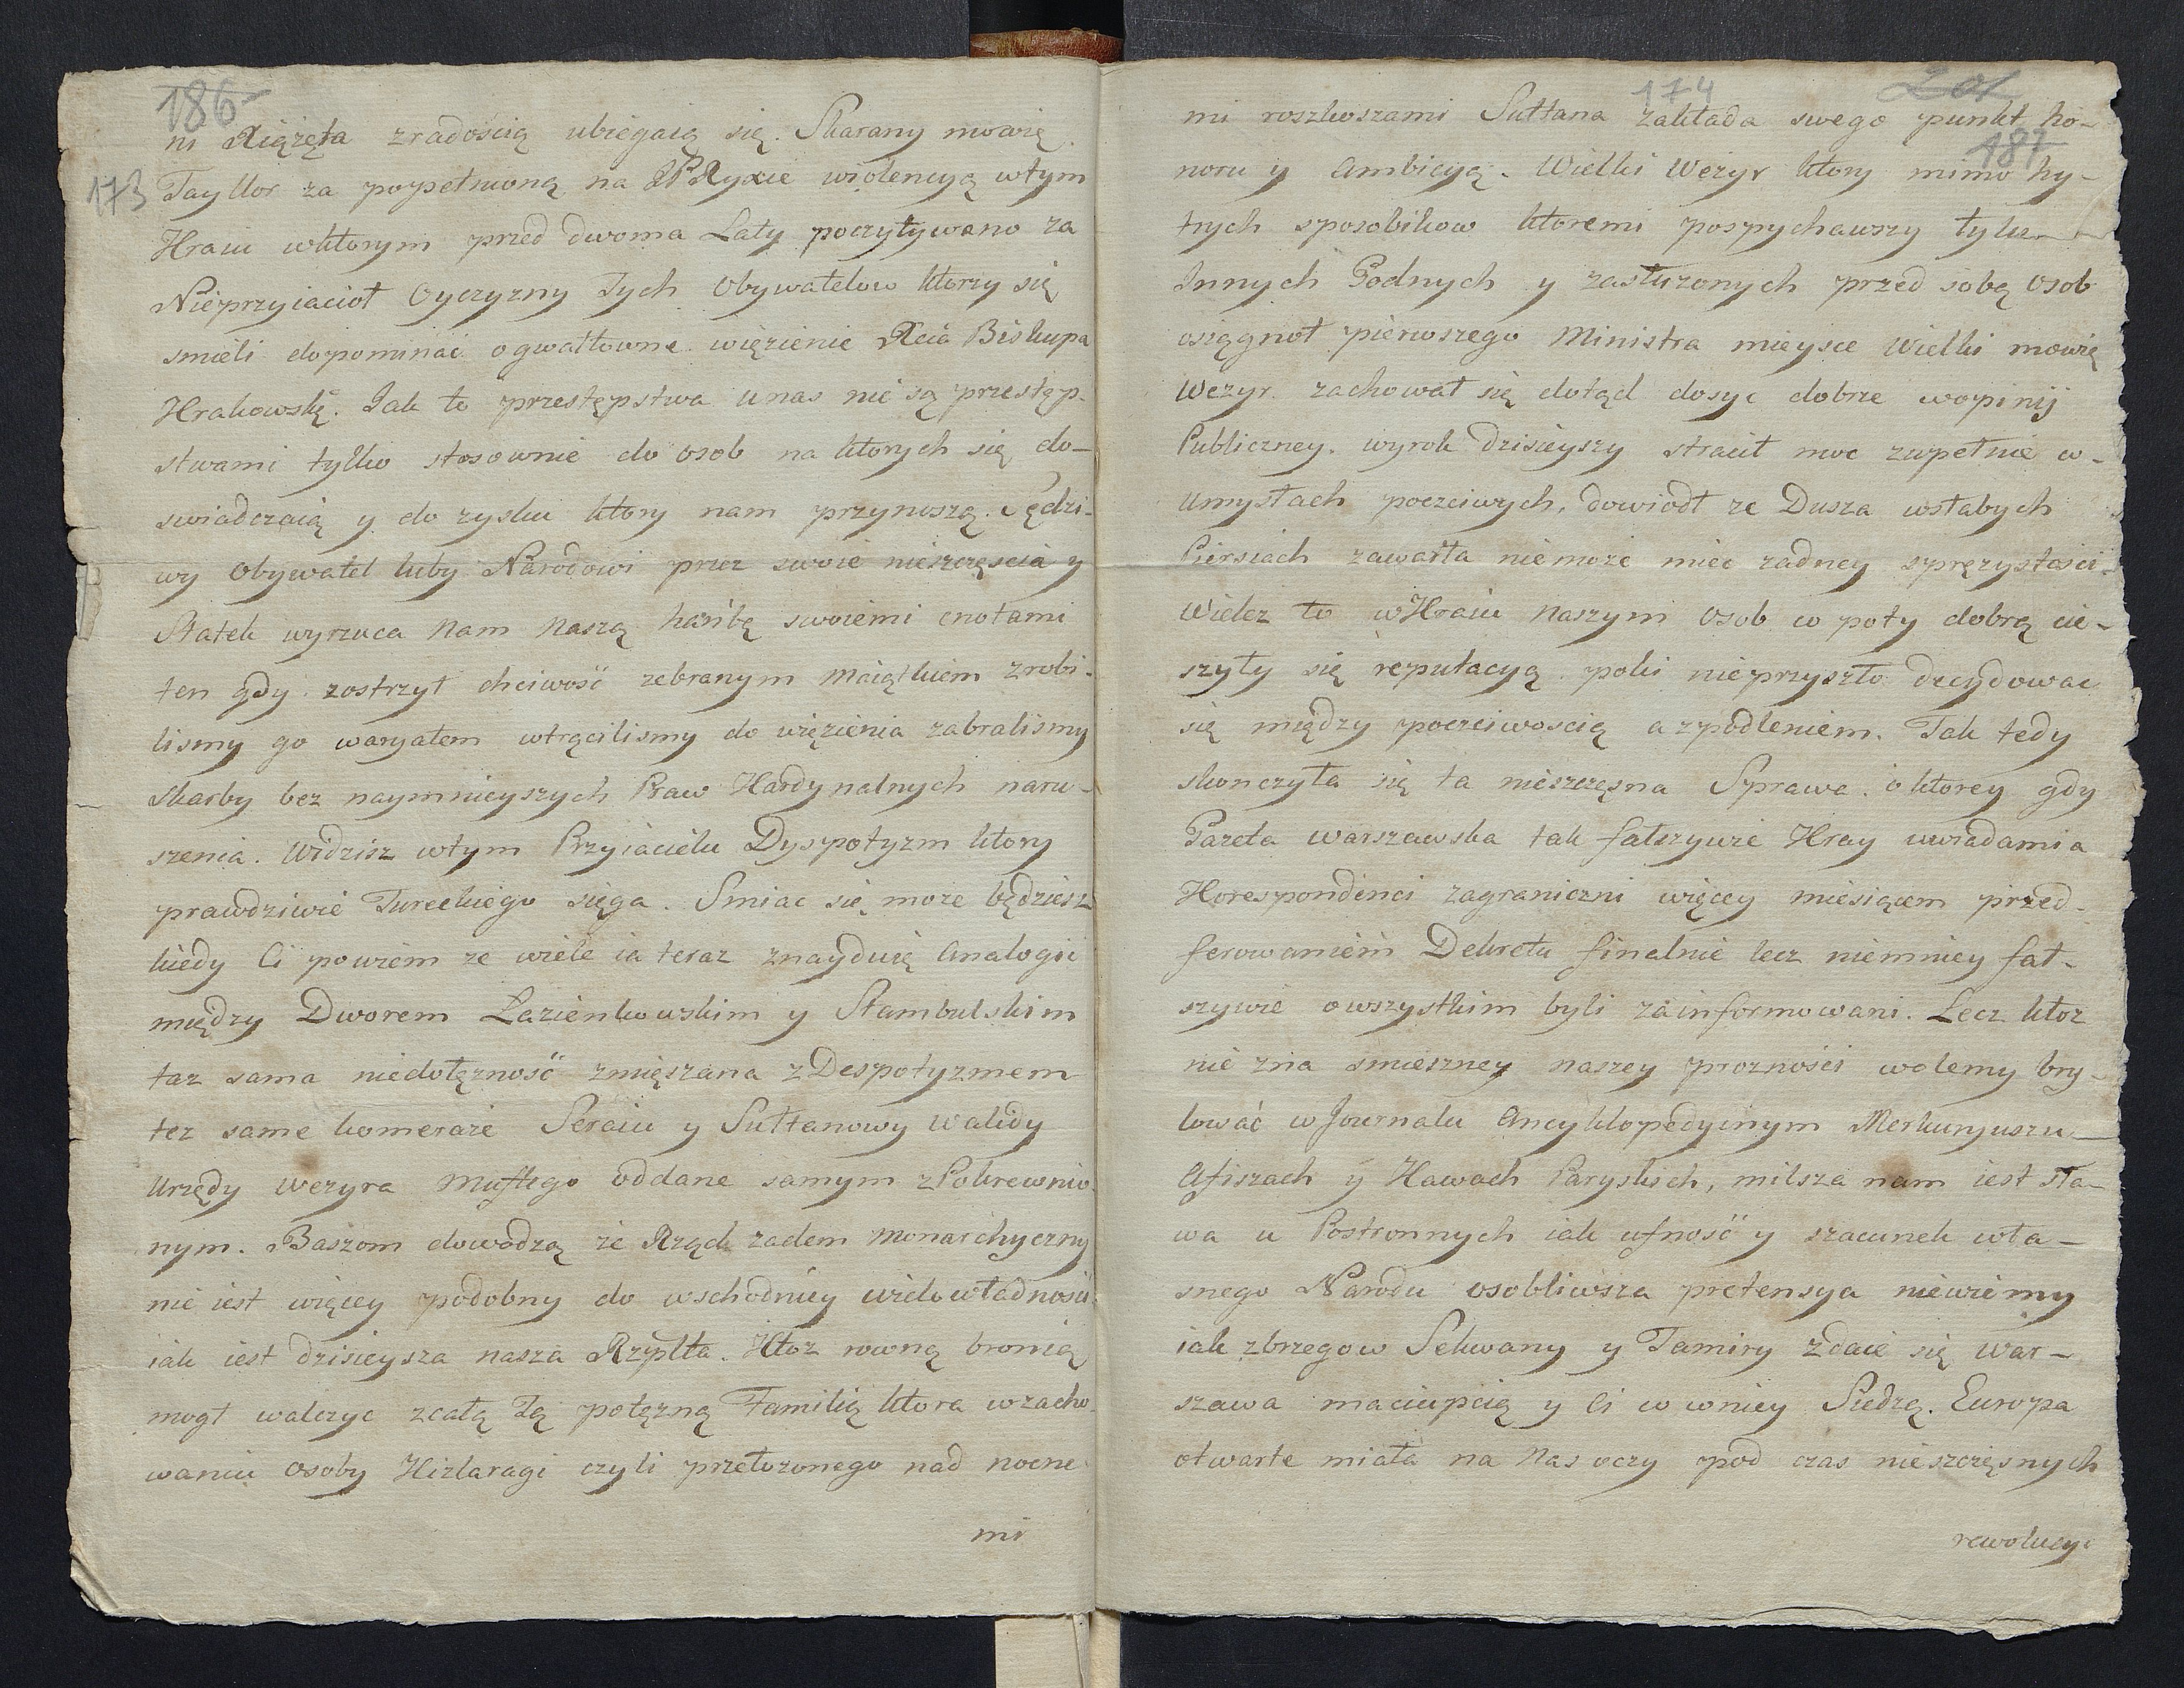 186
ni Xiążęta zradością ubiegaią się. Skarany mowię
173 Tayllor za popełnioną na JP Ryxie wiolencyą wtym
Kraiu wktorym przed dwoma Laty poczytywano za
Nieprzyiacioł Oyczyzny Tych Obywatelow ktorzy się
smieli dopominać ogwałtowne więzienie Xcia Biskupa
Krakowskº. Jak to przestępstwa unas nie są przestęp-
stwami tylko stosownie do osob na ktorych się do-
swiadczaią y do zysku ktory nam przynoszą. Sędzi-
wy Obywatel luby Narodowi przez swoie nieszczęscia y
Statek wyrzuca Nam Naszą hańbę swoiemi cnotami
ten gdy zostrzył chciwość zebranym Maiątkiem zrobi-
lismy go waryatem wtrącilismy do więzienia zabralismy
Skarby bez naymnieyszych Praw Kardynalnych naru-
szenia. Widzisz wtym Przyiacielu Dyspotyzm ktory
prawdziwie Tureckiego sięga. Smiac się może będziesz
kiedy Ci powiem ze wiele ia teraz znayduię Analogii
między Dworem Łazienkowskim y Stambulskim
taz sama niedołęzność zmięszana zDespotyzmem
tez same komeraże Seraiu y Sułtanowy Walidy
Urzędy Wezyra Muftego oddane samym zPokrewnio-
nym. Baszom dowodzą że Rząd zaden Monarchyczny
nie iest więcey podobny do wschodniey wielowładności
iak iest dzisieysza nasza Rzplta. Ktoz rowną bronią
mogł walczyc zcałą Tą potęzną Familią ktora wzacho-
waniu Osoby Kizlaragi czyli przełozonego nad nocne
mi
174 201
187
mi roszkoszami Sułtana zakłada swego punkt ho-
noru y Ambicyą. Wielki Wezyr ktory mimo hy-
trych sposobikow ktoremi pospychawszy tylu
Innych Godnych y zasłuzonych przed sobą Osob
osiągnoł pierwszego Ministra mieysce Wielki mowię
Wezyr zachował się dotąd dosyc dobrze wopinij
Publiczney. wyrok dzisieyszy stracił moc zupełnie w-
Umysłach poczciwych, dowiodł ze Dusza wsłabych
Piersiach zawarta niemoże miec zadney sprężystości.
Wielez to wKraiu Naszym Osob w poty dobrą cie-
szyły się reputacyą poki nieprzyszło decydowac
się między poczciwoscią azpodleniem. Tak tedy
skonczyła się ta nieszczęsna Sprawa. o ktorey gdy
Gazeta Warszawska tak fałszywie Kray uwiadamia
Korespondenci zagraniczni więcey miesiącem przed-
ferowaniem Dekretu finalnie lecz niemniey fał-
szywie owszystkim byli zainformowani. Lecz ktoz
nie zna smieszney naszey prozności wolemy bry-
lować w Journalu Ancyklopedycznym Merkuryuszu
Afiszach y Kawach Paryskich, milsza nam iest sła-
wa u Postronnych iak ufność y szacunek wła-
snego Narodu osobliwsza pretensya niewiemy
iak zbrzegow Sekwany y Tamizy zdaie się War-
szawa maciupcią y Ci w wniey Siedzą. Europa
otwarte miała na Nas oczy pod czas nieszczęsnych
rewolucyi